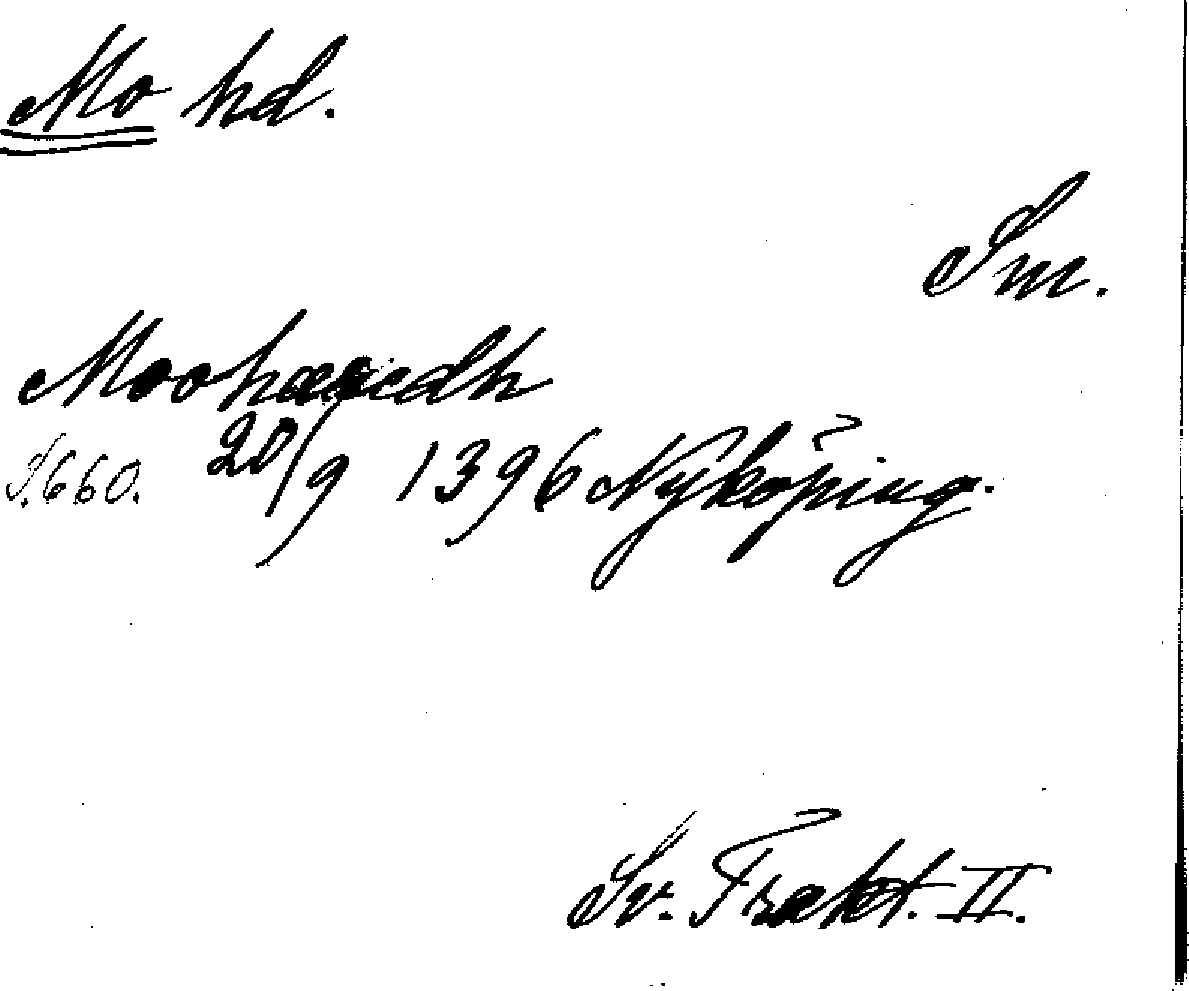 Mo hd.
Sm.
Moohæredh
S. 660. 20/9 1396 Nyköping.
Sv. Trakt. II.